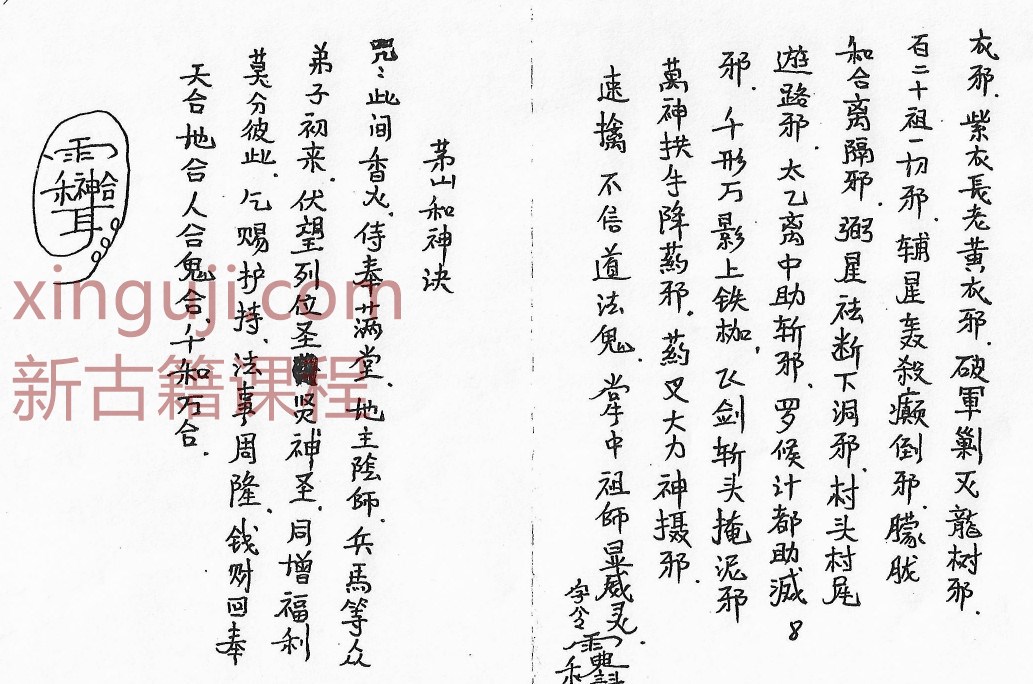 衣邪.紫衣長老黄衣邪.破軍剿灭龍树邪.
百二十祖一切邪.辅星轰殺癫倒邪.朦胧
和合离隔邪.弼星祛断下洞邪.村头村尾
遊路邪.太乙离中助斩邪.罗候计都助滅
8
邪.千形万影上铁枷,飞剑斩头掩泥邪
萬神拱手降葯邪.葯叉大力神摄邪.
速擒不信道法鬼.掌中祖師显威灵.
字令
茅山和神诀
咒:此间香火.侍奉廿两堂.地主陰師.兵馬等众
弟子初来.伏望列位圣贤神圣.同增福利
莫分彼此.乞赐护持.法事周隆.钱财回奉
天合地合人合鬼合.千和万合.
xinguji.com
新古籍课程